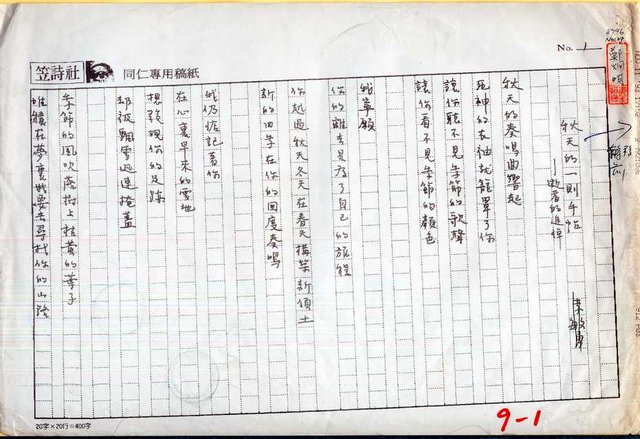 No. 1
笠詩社 同仁專用稿紙
鄭烱明
秋天的一則手帖
——逝者的追悼
李敏勇
秋天的奏鳴曲響起
死神的衣袖就籠罩了你
讓你聽不見季節的歌聲
讓你看不見季節的顏色
我寧願
你的離去是為了自己的旅程
你越過秋天冬天在春天構築新領土
新的四季在你的國度奏鳴
我仍惦記着你
在心裏早來的雪地
想發現你的足跡
卻被飄雪迅速掩蓋
季節的風吹落樹上枯黃的葉子
誰能在夢裏我要去尋找你的山路
20字×20行=400字
9-1